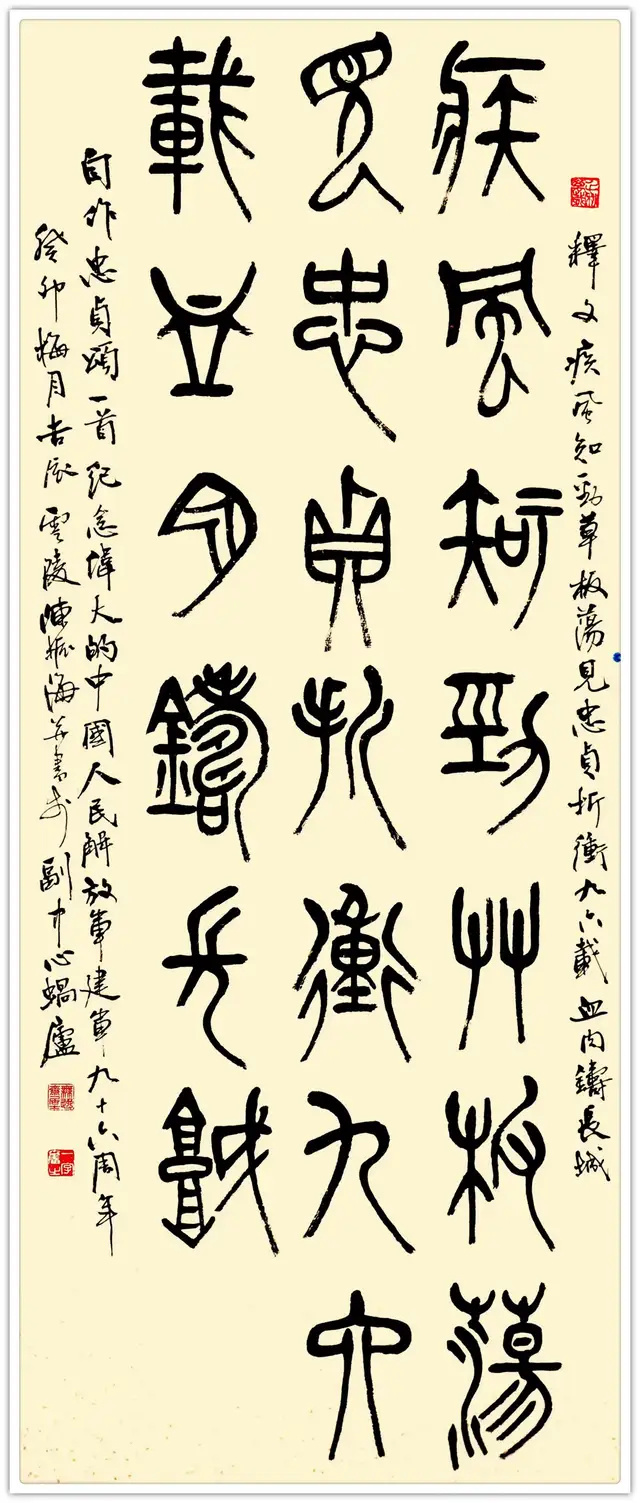 釋文疾風知勁草板蕩見忠貞折衝九六載血肉鑄長城
疾風知勁草板蕩
見忠貞折衝九六
載血肉鑄長城
自作忠貞頌一首紀念偉大的中國人民解放軍建軍九十六周年
癸卯梅月吉辰雲陵陳海並書於副中心蝸廬